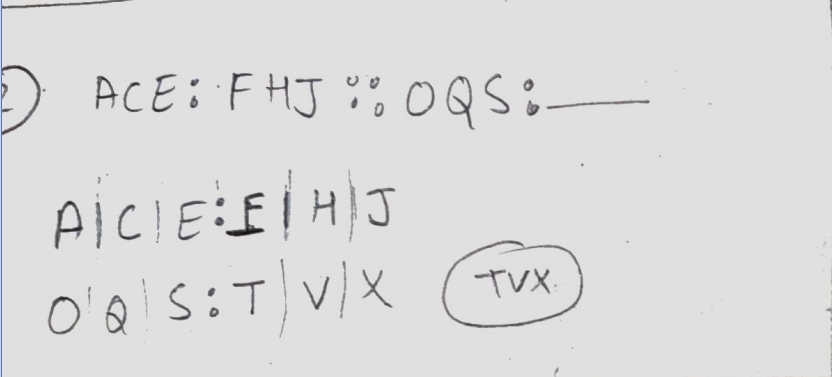 2) ACE : FHJ :: OQS : ______
A|C|E:F|H|J
O|Q|S:T|V|X TVX